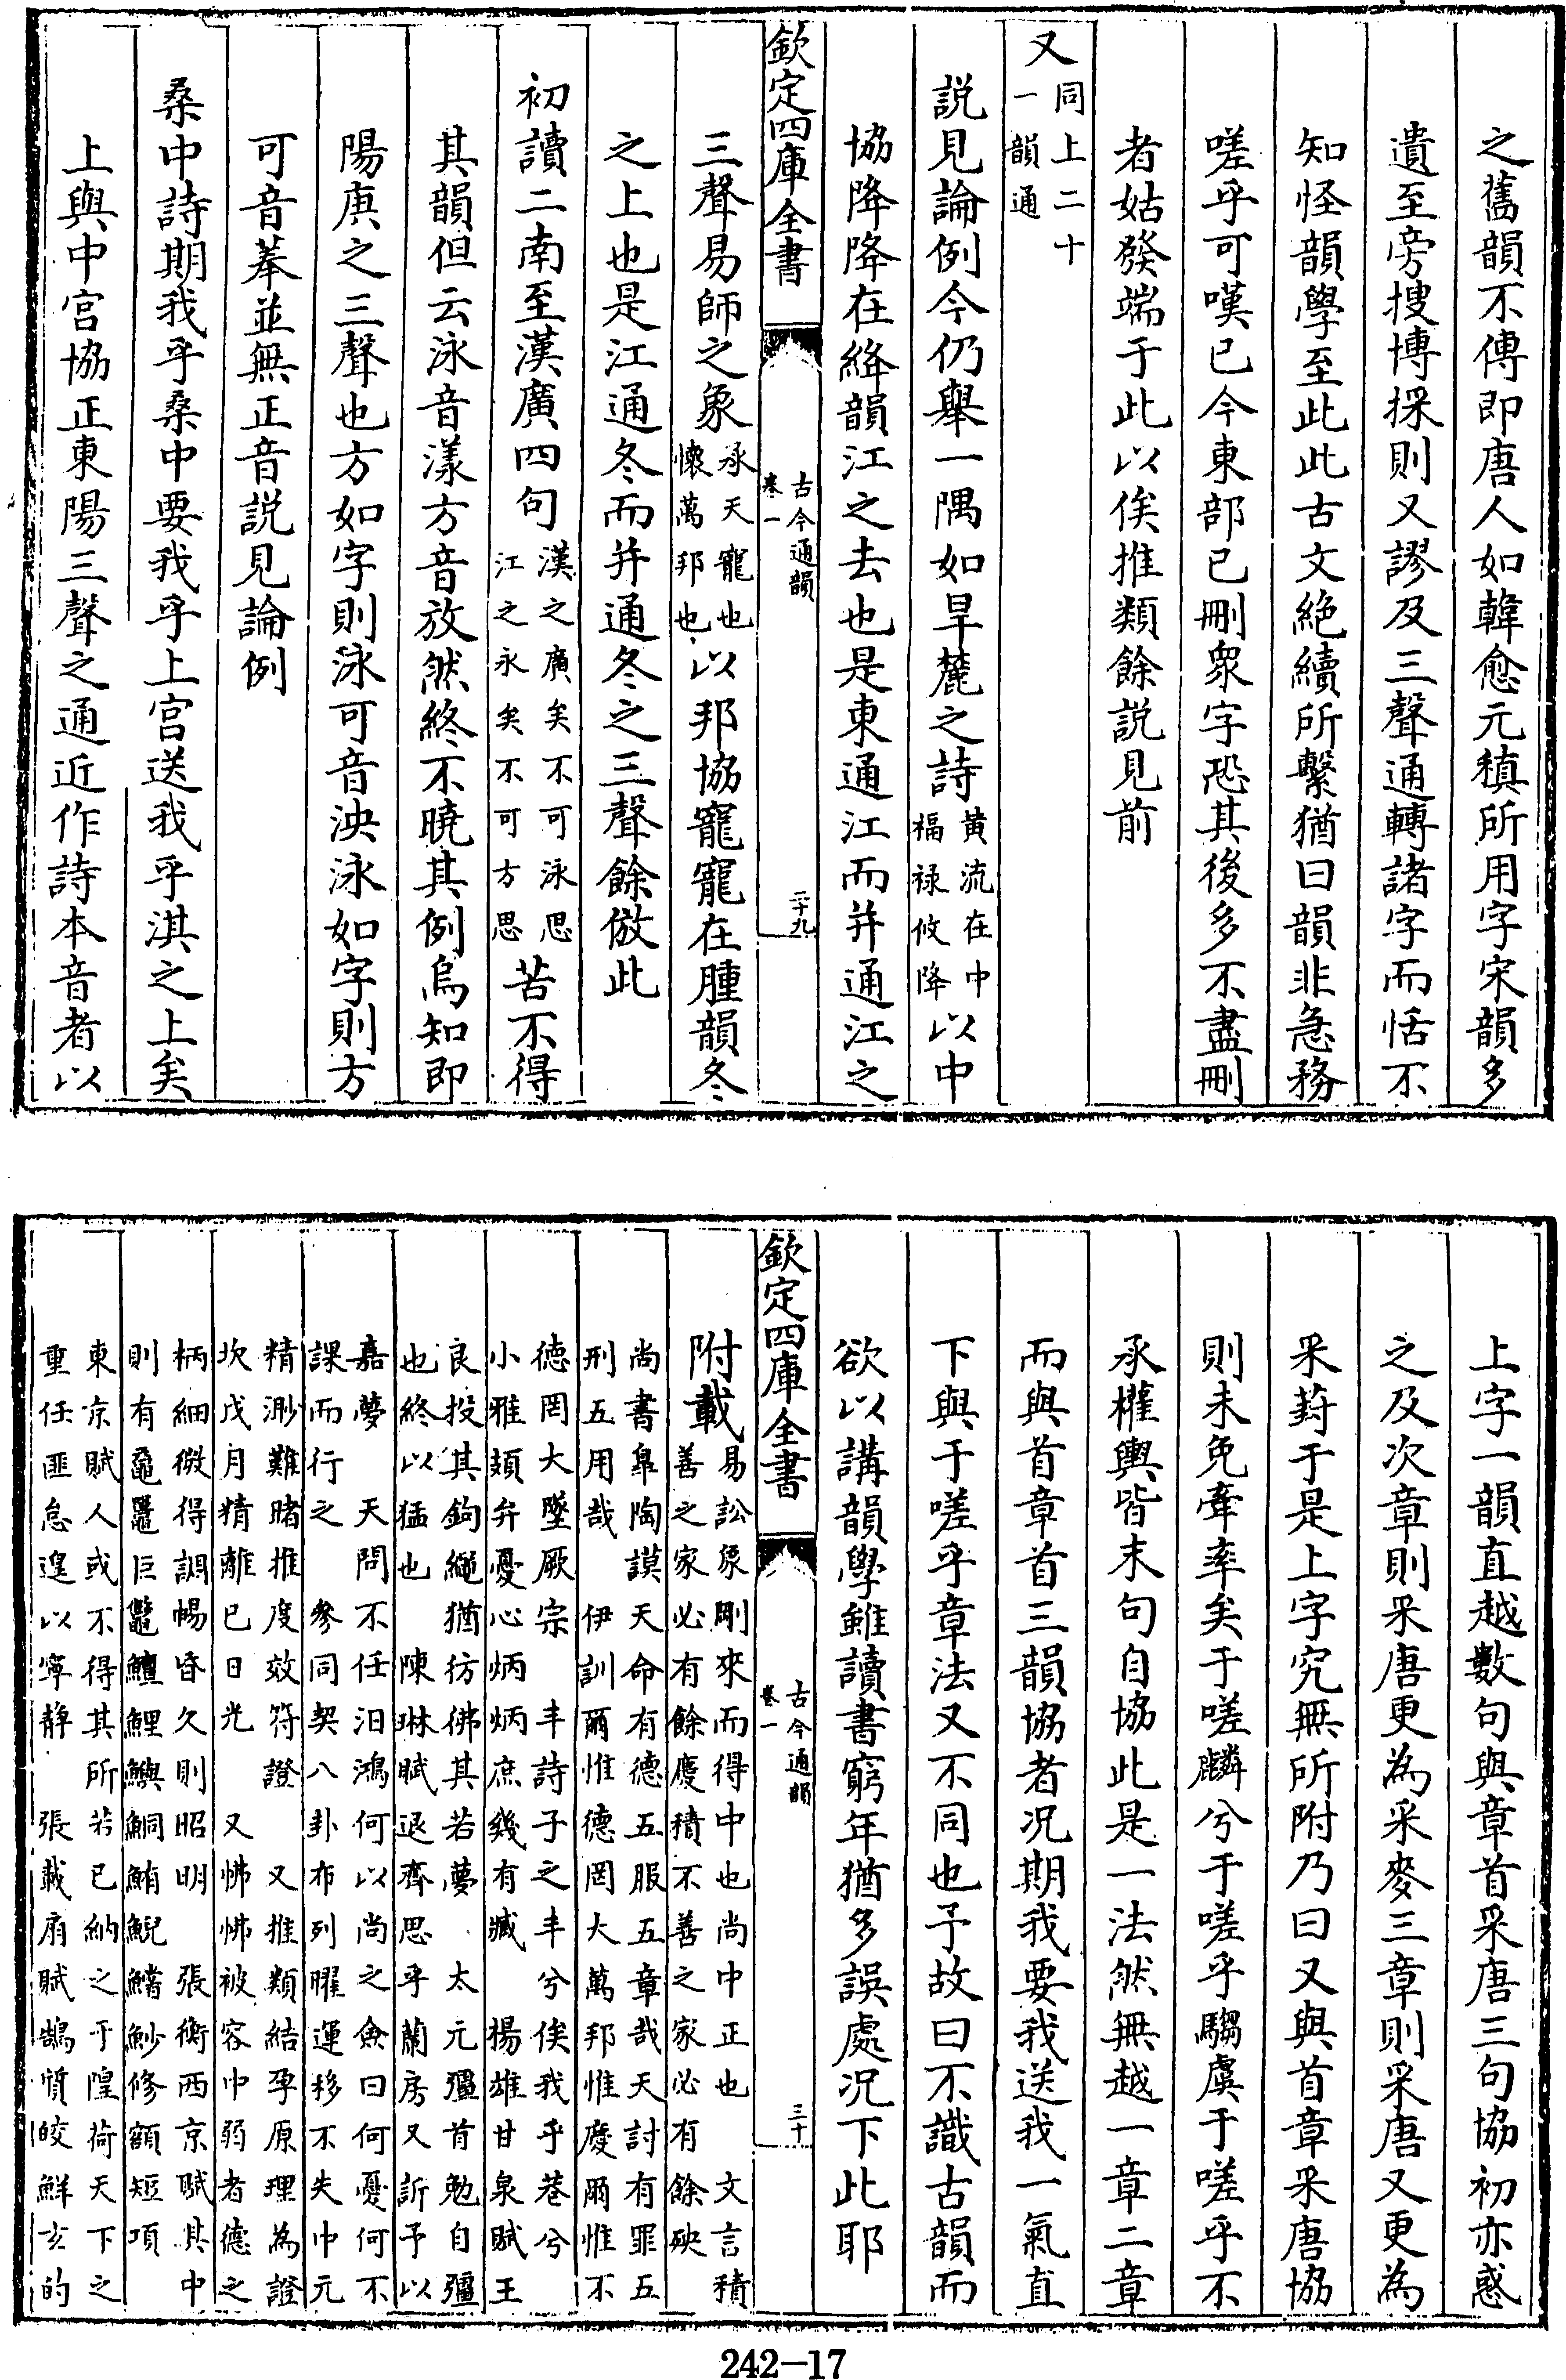 之舊韻不傳即唐人如韓愈元稹所用字宋韻多
遺至旁搜博採則又謬及三聲通轉諸字而恬不
知怪韻學至此此古文絕續所繫猶曰韻非急務
嗟乎可嘆已今東部已刪衆字恐其後多不盡刪
者姑發端于此以俟推類餘説見前
又同上二十一韻通
説見論例今仍舉一隅如旱麓之詩黄流在中福禄攸降以中
協降降在絳韻江之去也是東通江而并通江之
欽定四庫全書
古今通韻卷一
二十九
三聲易師之象承天寵也懷萬邦也以邦協寵寵在腫韻冬
之上也是江通冬而并通冬之三聲餘倣此
初讀二南至漢廣四句漢之廣矣不可泳思江之永矣不可方思苦不得
其韻但云泳音漾方音放然終不曉其例烏知即
陽庚之三聲也方如字則泳可音泱泳如字則方
可音摹並無正音説見論例
桑中詩期我乎桑中要我乎上宫送我乎淇之上矣
上與中宫協正東陽三聲之通近作詩本音者以
上字一韻直越數句與章首采唐三句協初亦惑
之及次章則采唐更為采麥三章則采唐又更為
采葑于是上字究無所附乃曰又與首章采唐協
則未免牽率矣于嗟麟兮于嗟乎騶虞于嗟乎不
承權輿皆末句自協此是一法然無越一章二章
而與首章首三韻協者况期我要我送我一氣直
下與于嗟乎章法又不同也予故曰不識古韻而
欲以講韻學雖讀書窮年猶多誤處况下此耶
欽定四庫全書
古今通韻卷一
三十
附載易訟彖剛來而得中也尚中正也 文言積善之家必有餘慶積不善之家必有餘殃
尚書臯陶謨天命有德五服五章哉天討有罪五刑五用哉 伊訓爾惟德罔大萬邦惟慶爾惟不
德罔大墜厥宗 丰詩子之丰兮俟我乎巷兮 小雅頍弁憂心炳炳庶幾有臧 楊雄甘泉賦王
良投其鉤繩猶彷彿其若夢 太元彊首勉自彊也終以猛也 陳琳賦退齊思乎蘭房又訢予以
嘉夢 天問不任汨鴻何以尚之僉曰何憂何不課而行之 參同契八卦布列曜運移不失中元
精渺難睹推度效符證 又推類結孕原理為證坎戊月精離已日光 又怫怫被容中弱者德之
柄細微得調暢昏久則昭明 張衡西京賦其中則有黿鼉巨鼈鱣鯉鱮鮦鮪鯢鱨魦修額短項
東京賦人或不得其所若已納之于隍荷天下之重任匪怠遑以寧静 張載扇賦鵠質皎鮮玄的
242-17